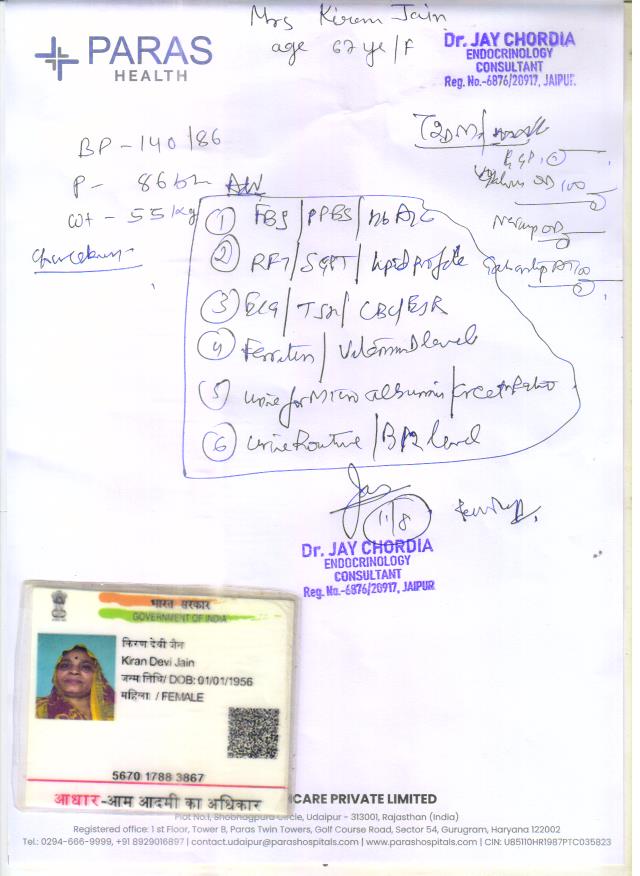 Mrs Kiran Jain
age 67 ye/F
PARAS
HEALTH
Dr. JAY CHORDIA
ENDOCRINOLOGY
CONSULTANT
Reg. No.-6876/20917, JAIPUR.
BP - 140/86
P - 86
wt - 55 kg
T2DM/
Adv
① FBS/PPBS/HbA1c
② RFT/SGPT/Lipid profile
③ ECG/TSH/CBC/ESR
④ Ferritin/Vitamin D levels
⑤ Urine for Micro albumin/Creat Ratio
⑥ Urine Routine/B12 level
OD 100
OD
11/8
Dr. JAY CHORDIA
ENDOCRINOLOGY
CONSULTANT
Reg. No.-6876/20917, JAIPUR
भारत सरकार
GOVERNMENT OF INDIA
किरण देवी जैन
Kiran Devi Jain
जन्म तिथि/ DOB: 01/01/1956
महिला / FEMALE
5670 1788 3867
आधार-आम आदमी का अधिकार
CARE PRIVATE LIMITED
Plot No.1, Shobhagpura Circle, Udaipur - 313001, Rajasthan (India)
Registered office: 1st Floor, Tower B, Paras Twin Towers, Golf Course Road, Sector 54, Gurugram, Haryana 122002
Tel.: 0294-666-9999, +91 8929016897 | contact.udaipur@parashospitals.com | www.parashospitals.com | CIN: U85110HR1987PTC035823